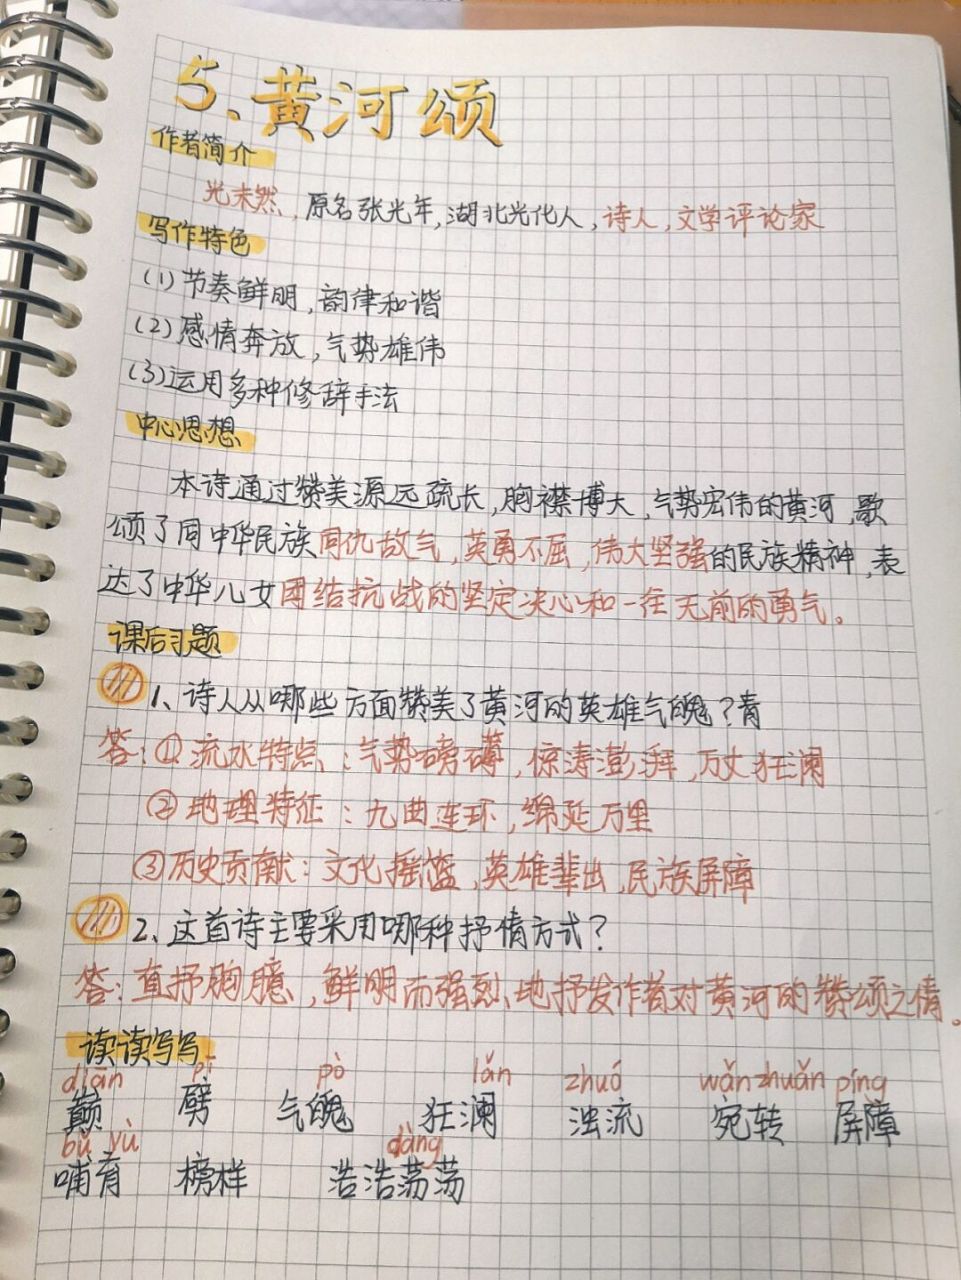 5、黄河颂
作者简介
光未然,原名张光年,湖北光化人,诗人,文学评论家
写作特色
(1)节奏鲜明,韵律和谐
(2)感情奔放,气势雄伟
(3)运用多种修辞手法
中心思想
本诗通过赞美源远疏长,胸襟博大,气势宏伟的黄河,歌
颂了同中华民族同仇敌气,英勇不屈,伟大坚强的民族精神,表
达了中华儿女团结抗战的坚定决心和一往无前的勇气。
课后习题
1、诗人从哪些方面赞美了黄河的英雄气魄?青
答:①流水特点:气势磅礴,惊涛澎拜,万丈狂澜
②地理特征:九曲连环,绵延万里
③历史贡献:文化摇篮,英雄辈出,民族屏障
2、这首诗主要采用哪种抒情方式?
答:直抒胸臆,鲜明而强烈地抒发作者对黄河的赞颂之情。
读读写写
diān pī pò lán zhuó wǎn zhuǎn píng
巅 劈 气魄 狂澜 浊流 宛转 屏障
bǔ yù dàng
哺育 榜样 浩浩荡荡